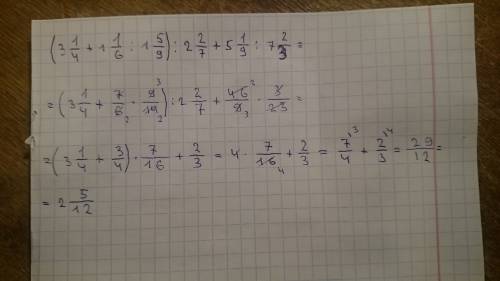 (3 1/4 + 1 1/6 : 1 5/9) : 2 2/7 + 5 1/9 : 7 2/3 =
= (3 1/4 + 7/6₂ · 9³/14₂) : 2 2/7 + 46²/9₃ · 3/23 =
= (3 1/4 + 3/4) · 7/16 + 2/3 = 4 · 7/16₄ + 2/3 = 7/4 ⁽³ + 2/3 ⁽⁴ = 29/12 =
= 2 5/12